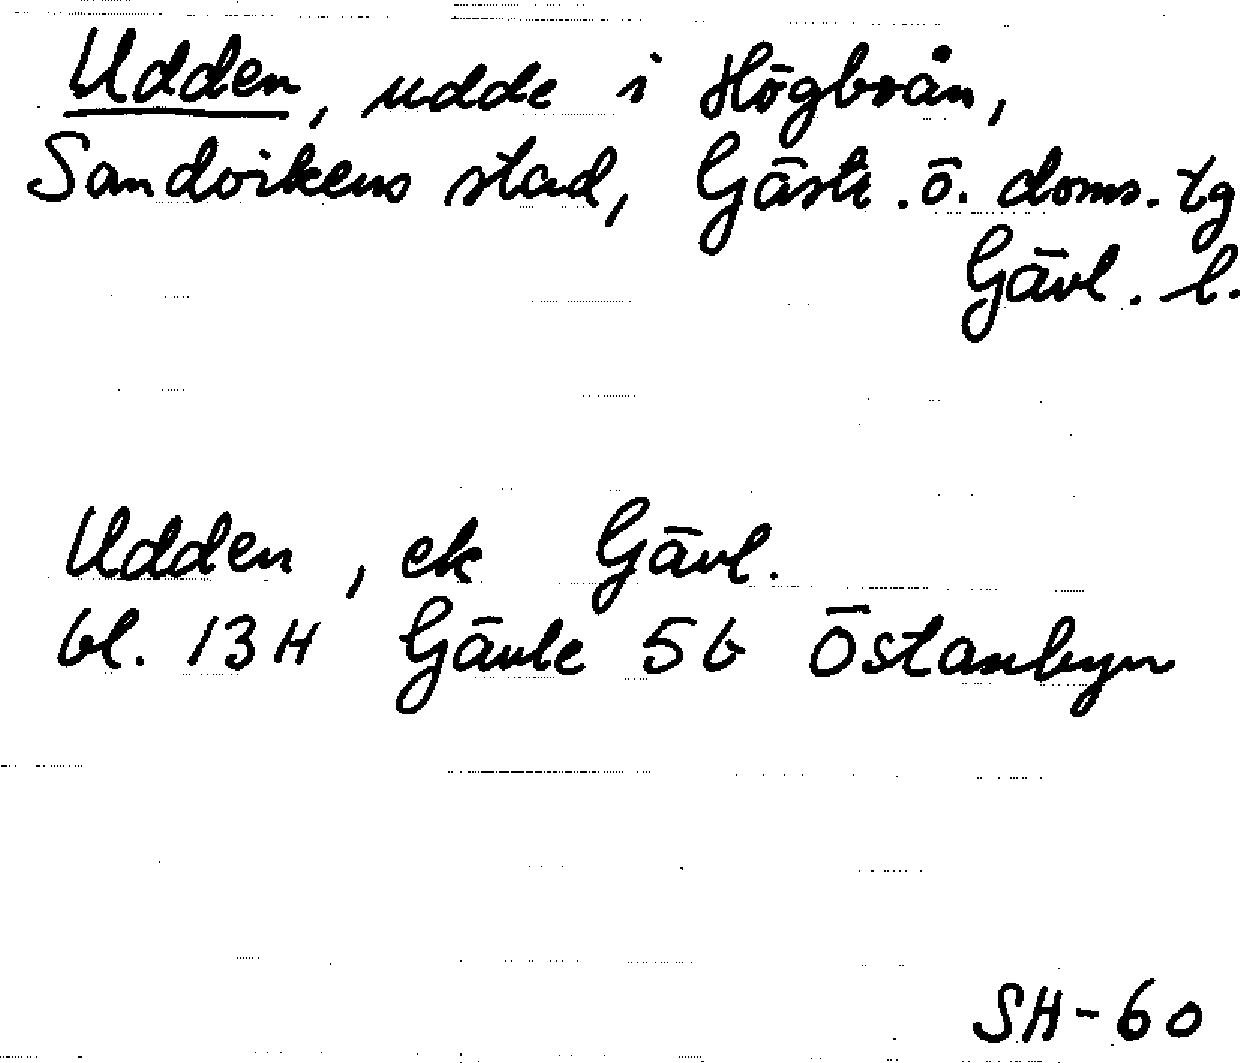 Udden, udde i Högboån,
Sandvikens stad, Gästr. ö. doms. tg
Gävl. l.
Udden, ek Gävl.
bl. 13H Gävle 5b Östanbyn
SH-60